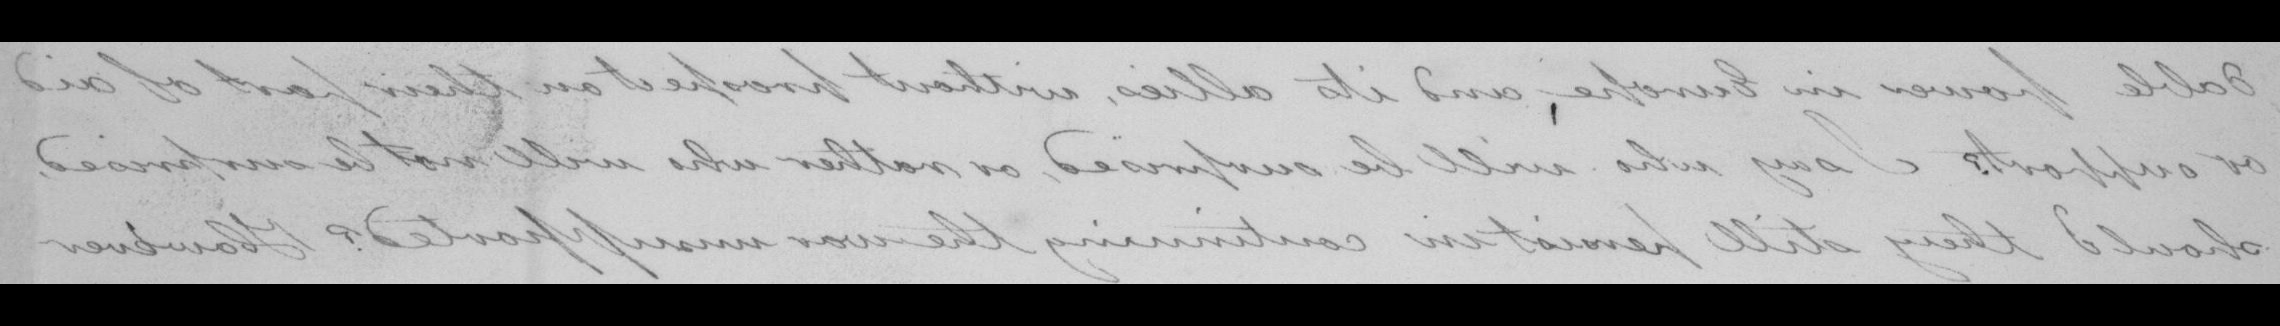 dable power in Europe, and its allies, without prospect on their part of aid
or support? I say who will be surprised, or rather who will not be surprised,
should they still persist in continuing the war unsupported? However